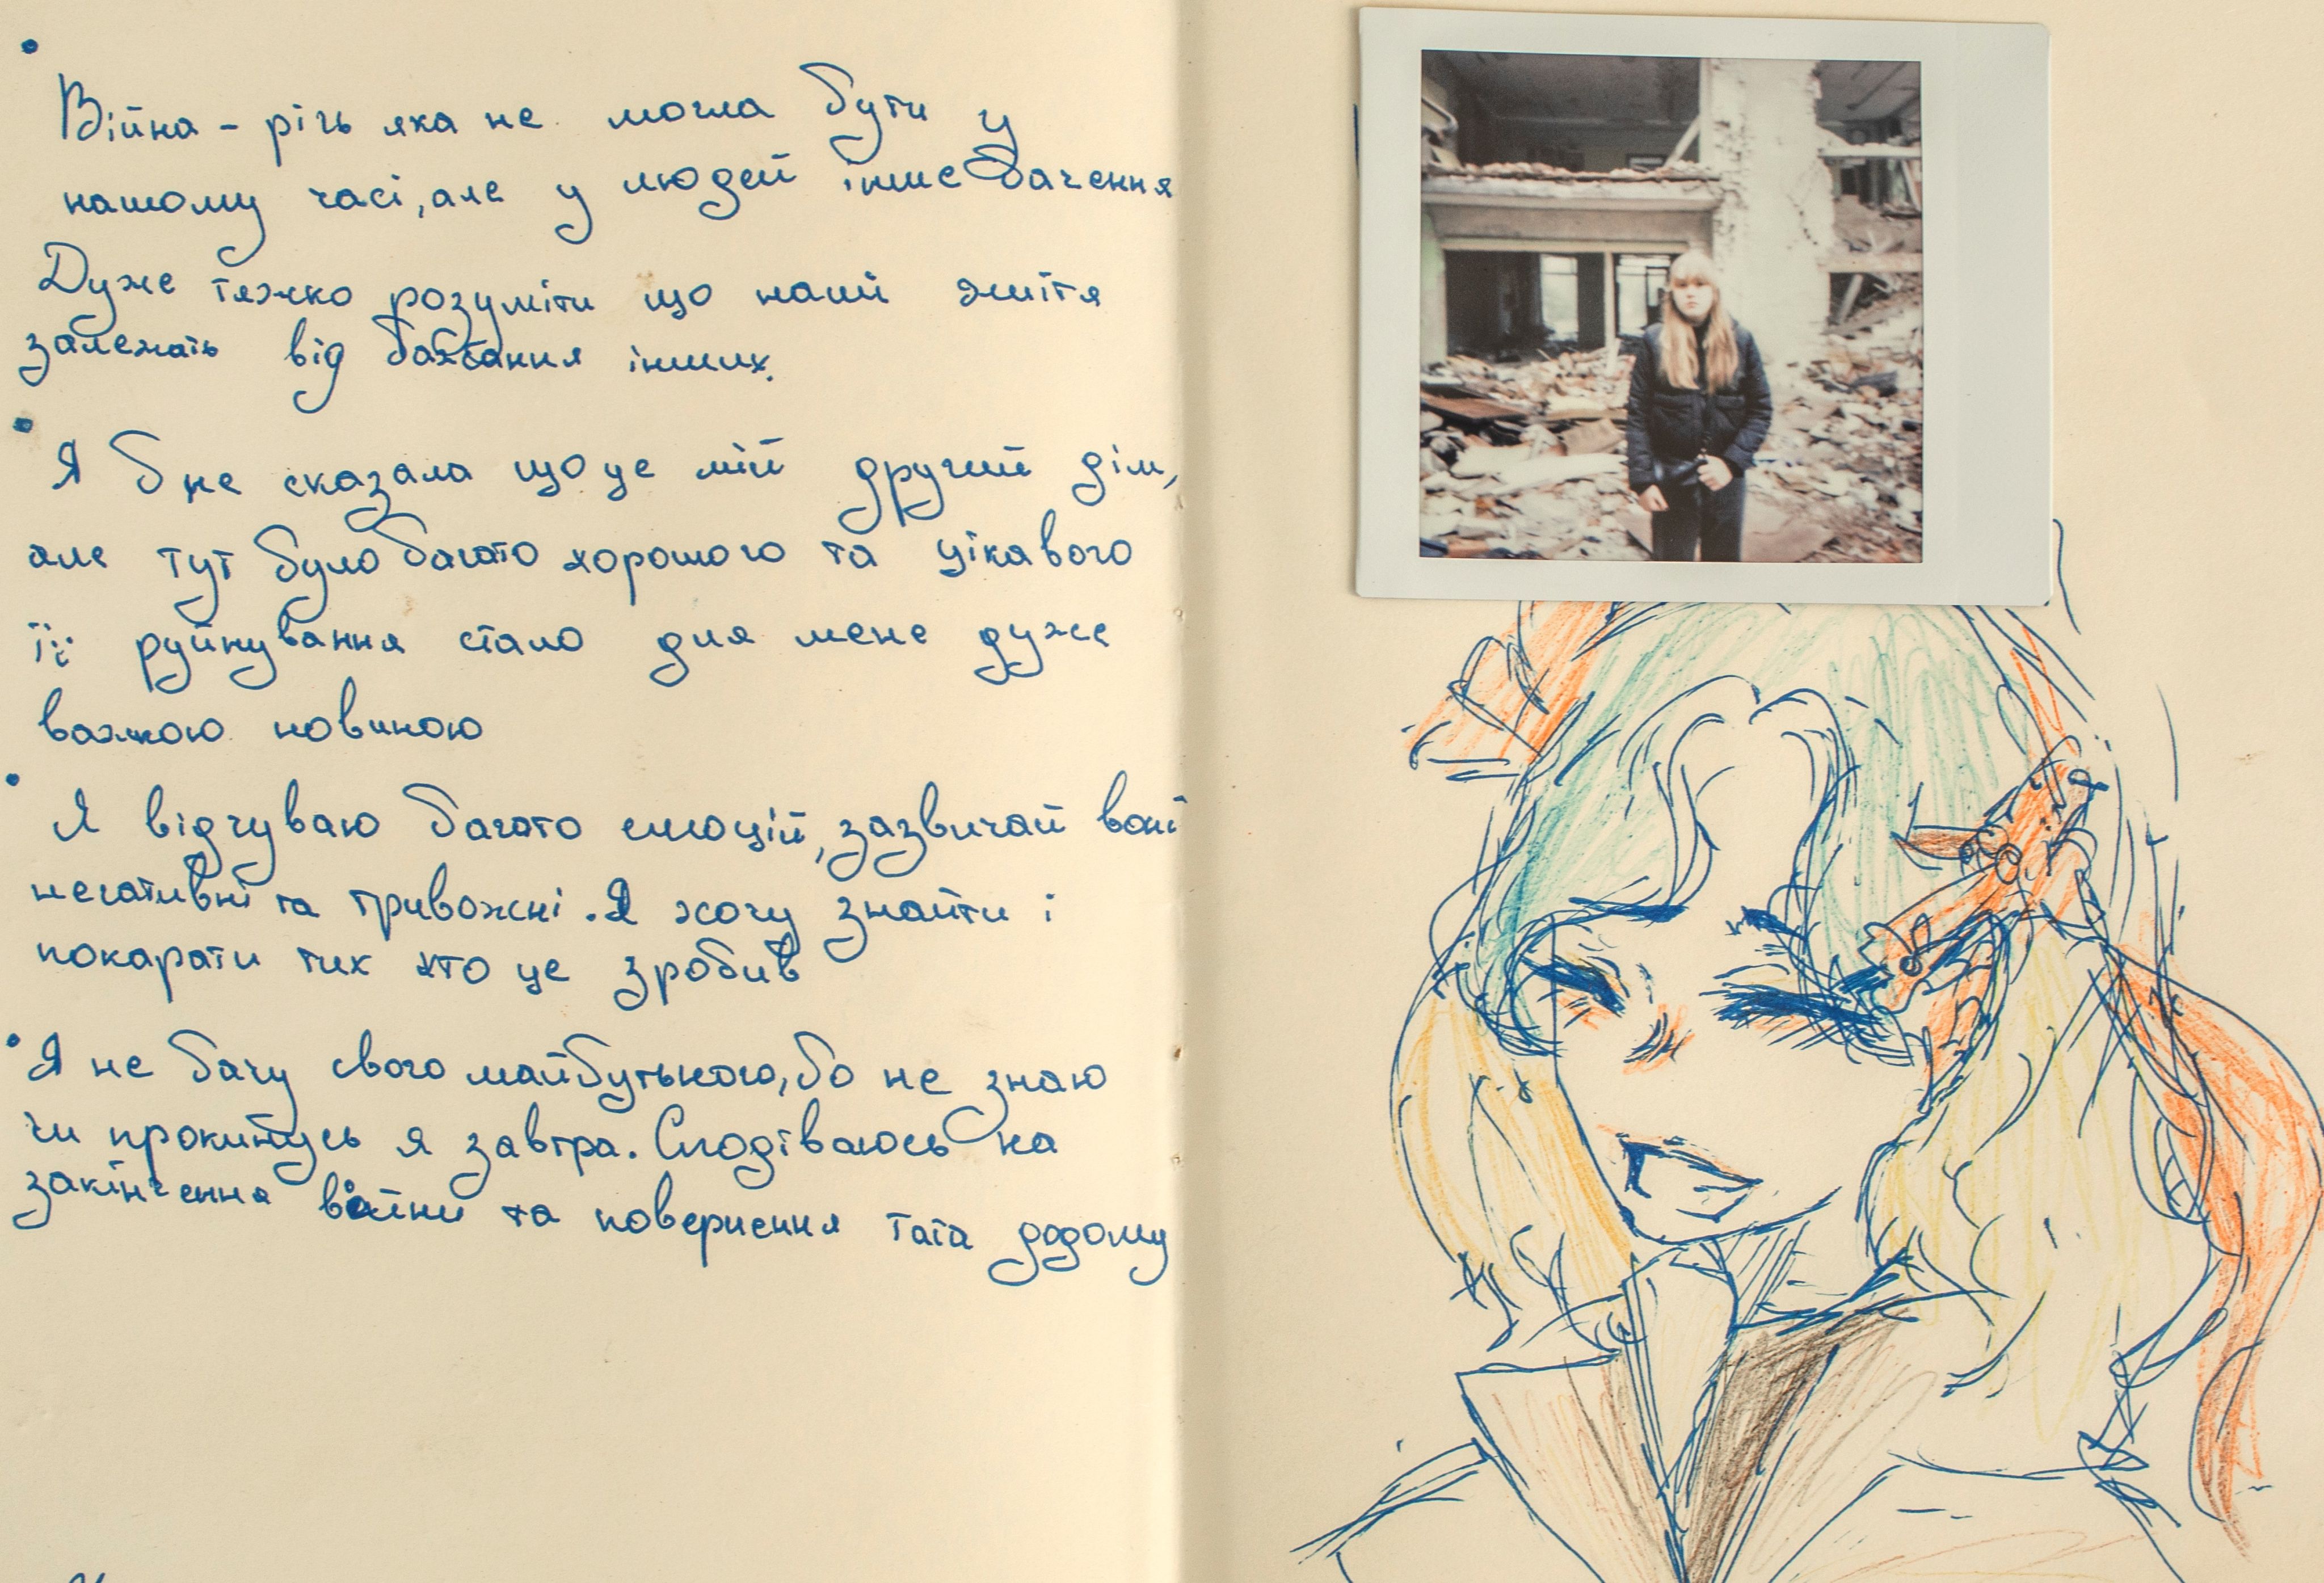 Війна - річ яка не могла бути у
нашому часі, але у людей інше бачення
Дуже тяжко розуміти що наші життя
залежать від бажання інших.
Я б не сказала що це мій другий дім,
але тут було багато хорошого та цікавого
її руйнування стало для мене дуже
важкою новиною
Я відчуваю багато емоцій, зазвичай вони
негативні та тривожні. Я хочу знайти і
покарати тих хто це зробив
Я не бачу свого майбутнього, бо не знаю
чи прокинусь я завтра. Сподіваюсь на
закінчення війни та повернення тата додому